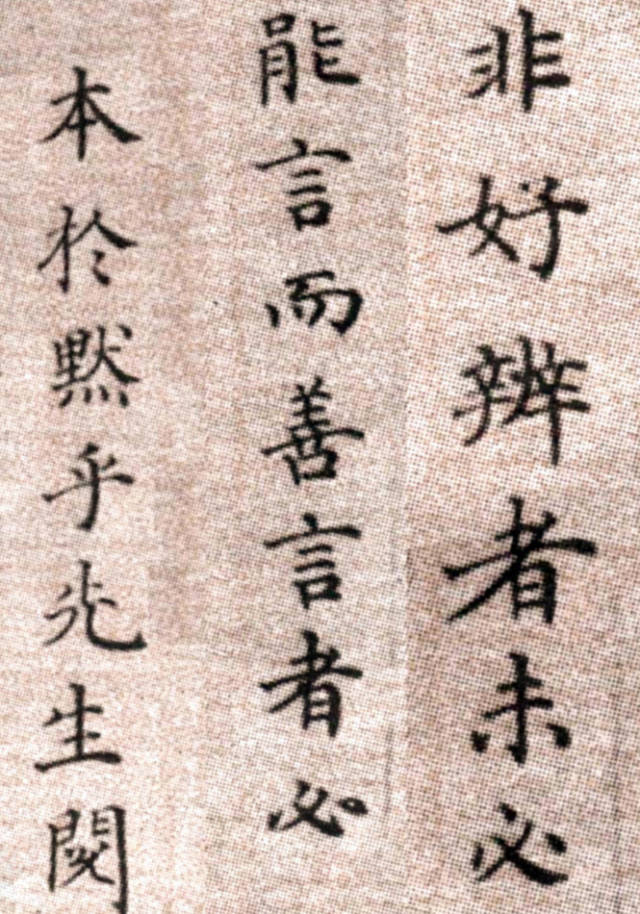 非好辨者未必
能言而善言者必
本於默乎先生閔